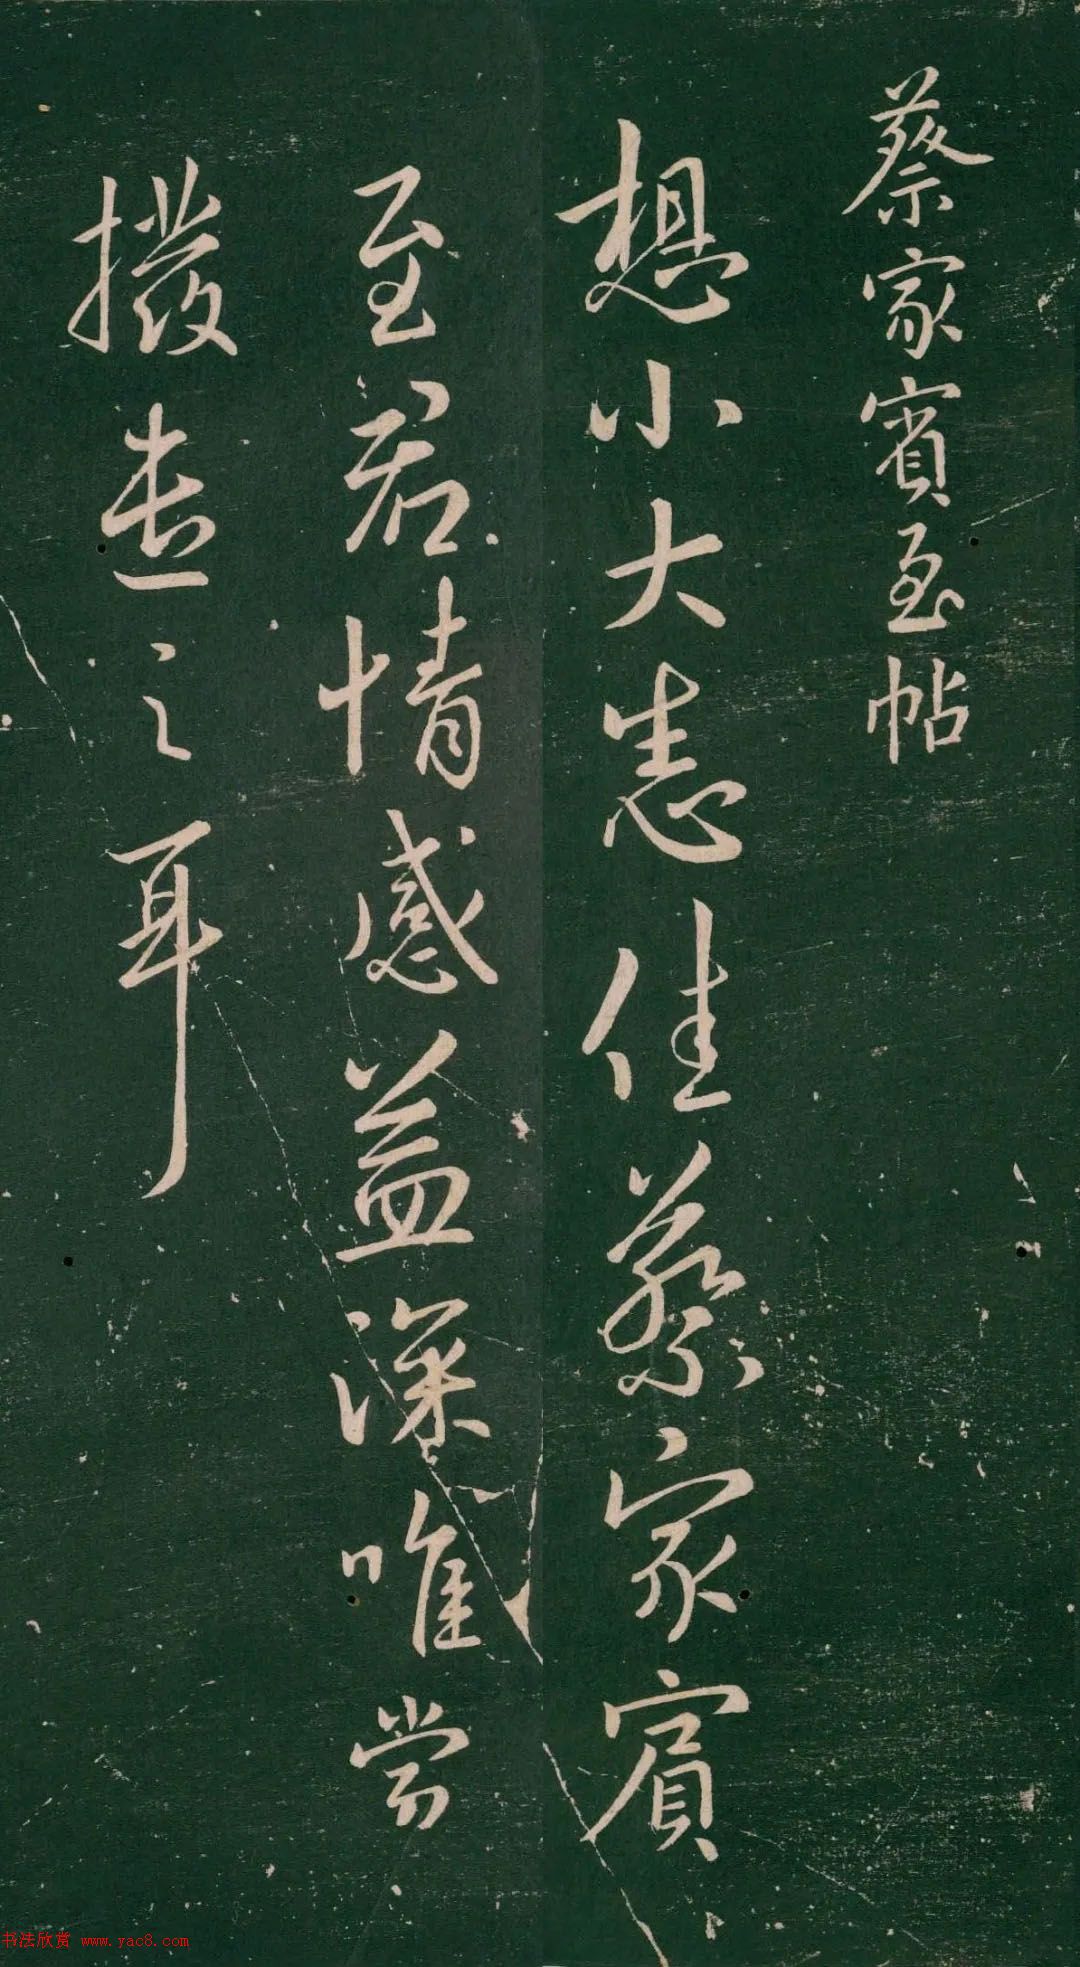 蔡家賓至帖
想小大悉佳蔡家賓
至君情感益深唯當
撥遣之耳
书法欣赏 www.yac8.com